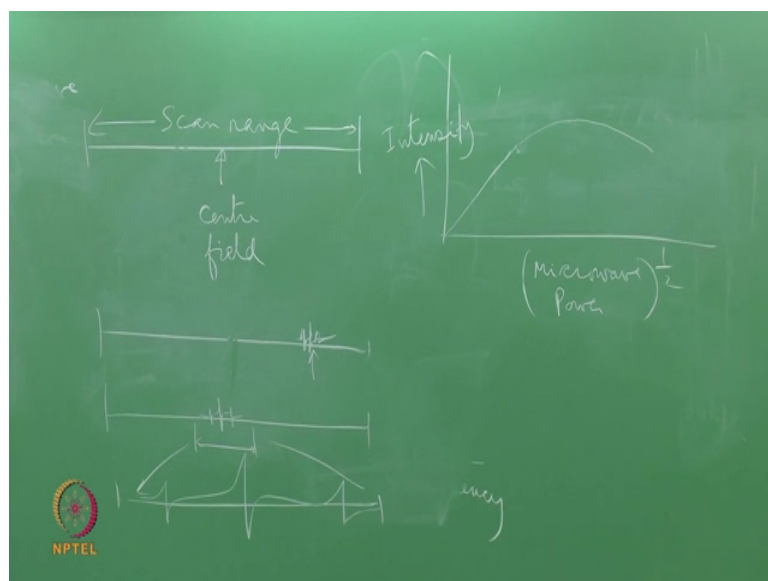 Scan range
Centre
field
Intensity
(Microwave
Power)^1/2
NPTEL